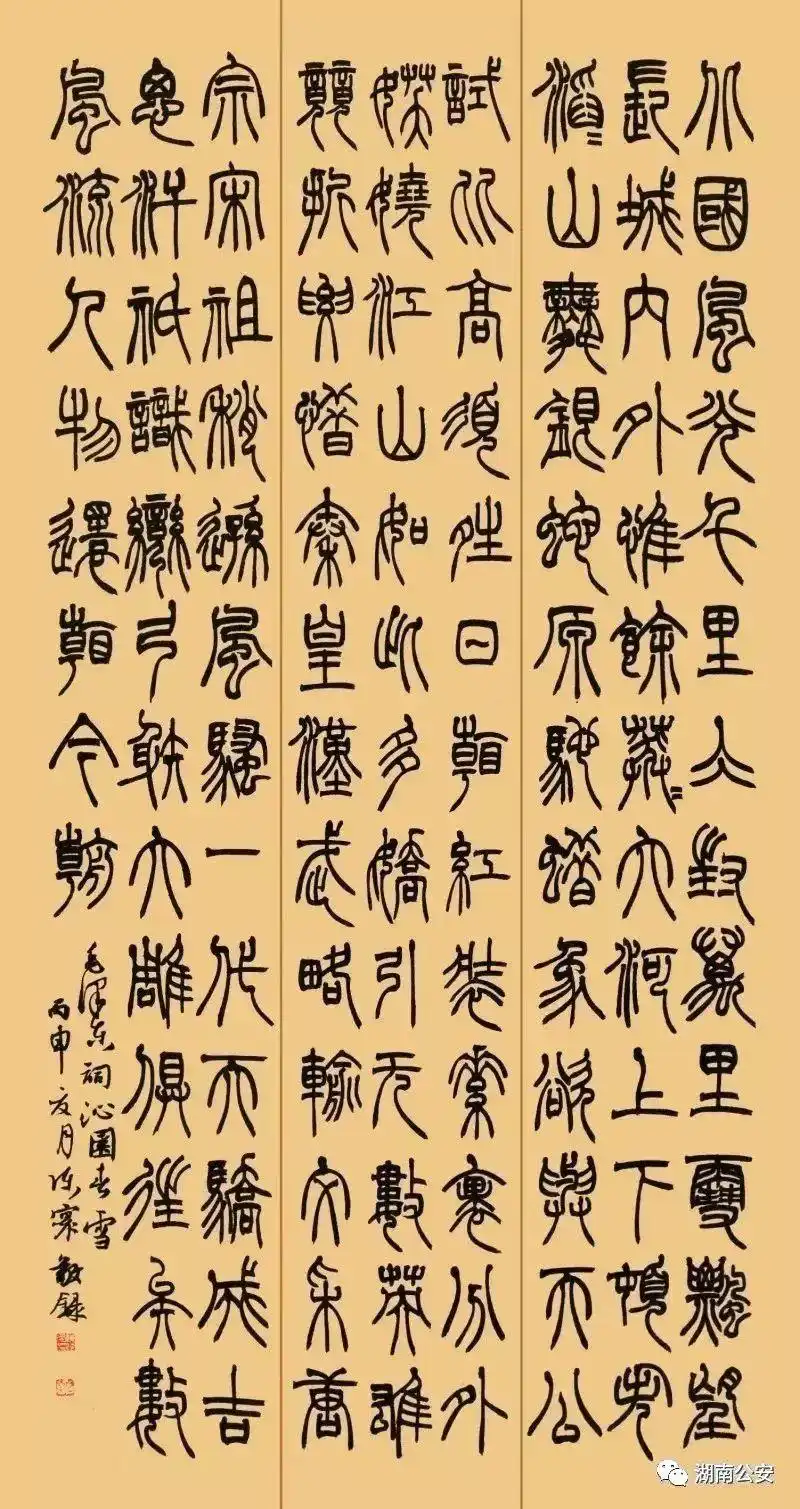 北國風光千里冰封萬里雪飄望
長城內外惟餘莽〻大河上下頓失
滔〻山舞銀蛇原馳蠟象欲與天公
試比高須晴日看紅裝素裹分外
妖嬈江山如此多嬌引无數英雄
競折腰惜秦皇漢武略輸文采唐
宗宋祖稍遜風騷一代天驕成吉
思汗祇識彎弓射大雕俱往矣數
風流人物還看今朝
毛澤东詞沁園春雪
丙申 月 寒敬錄
湖南公安